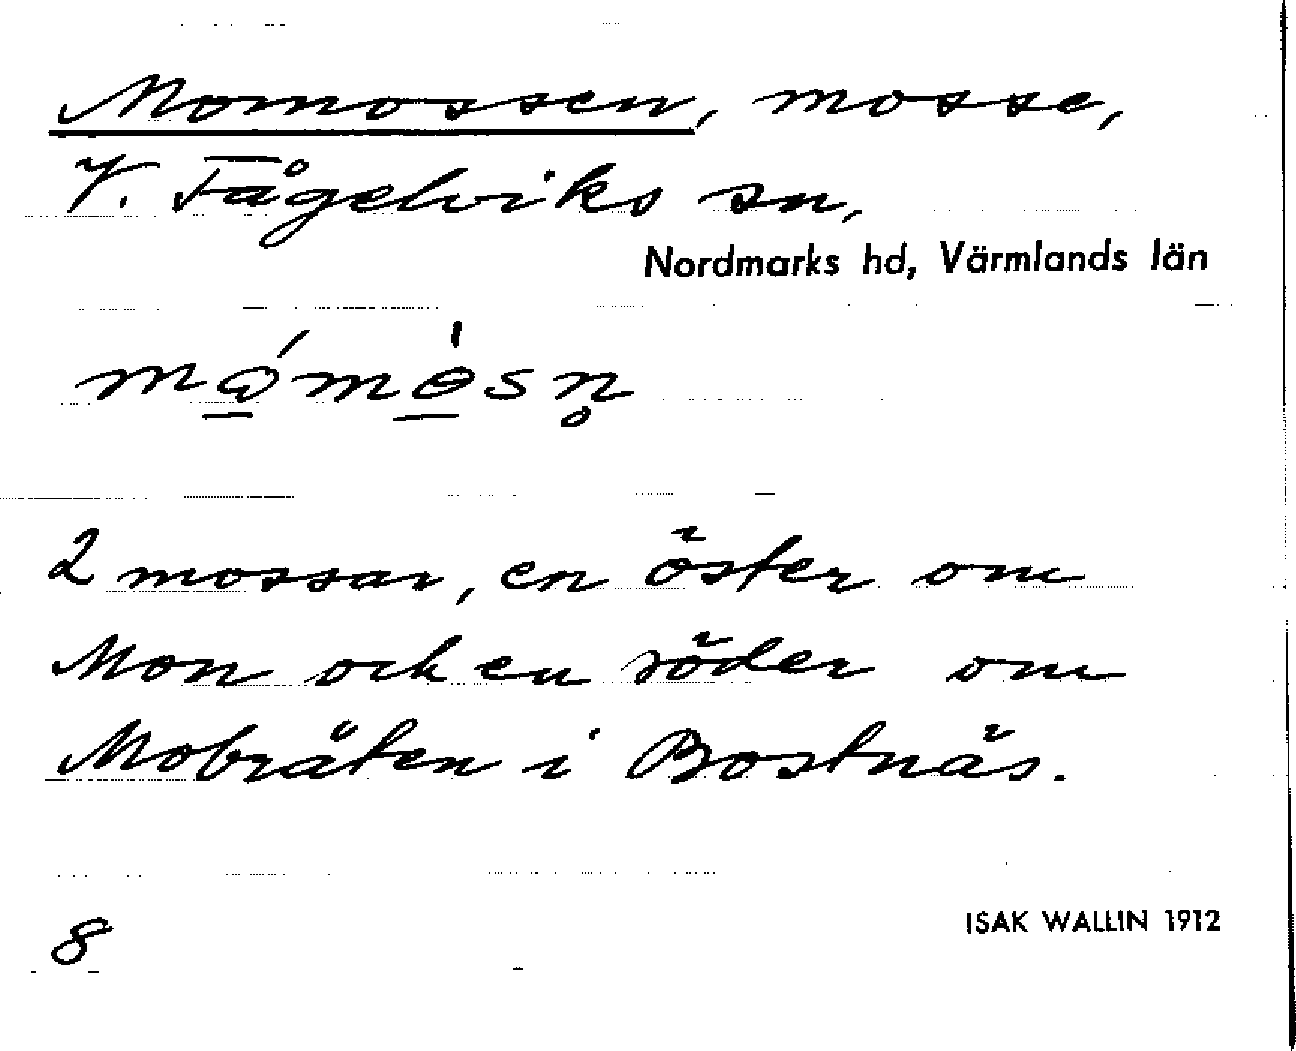 Momossen, mosse,
V. Fågelviks sn,
Nordmarks hd, Värmlands län
2 mossar, en öster om
Mon och en söder om
Mobråten i Bostnäs.
8
ISAK WALLIN 1912